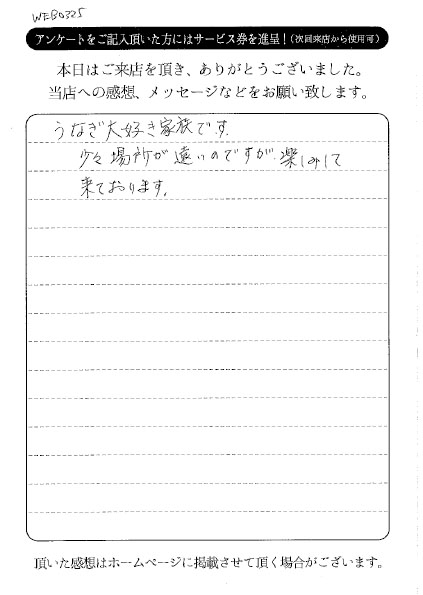 WEB0325
アンケートをご記入頂いた方にはサービス券を進呈！(次回来店から使用可)
本日はご来店を頂き、ありがとうございました。
当店への感想、メッセージなどをお願い致します。
うなぎ大好き家族です.
少々場所が遠いのですが.楽しみして
来ております.
頂いた感想はホームページに掲載させて頂く場合がございます。